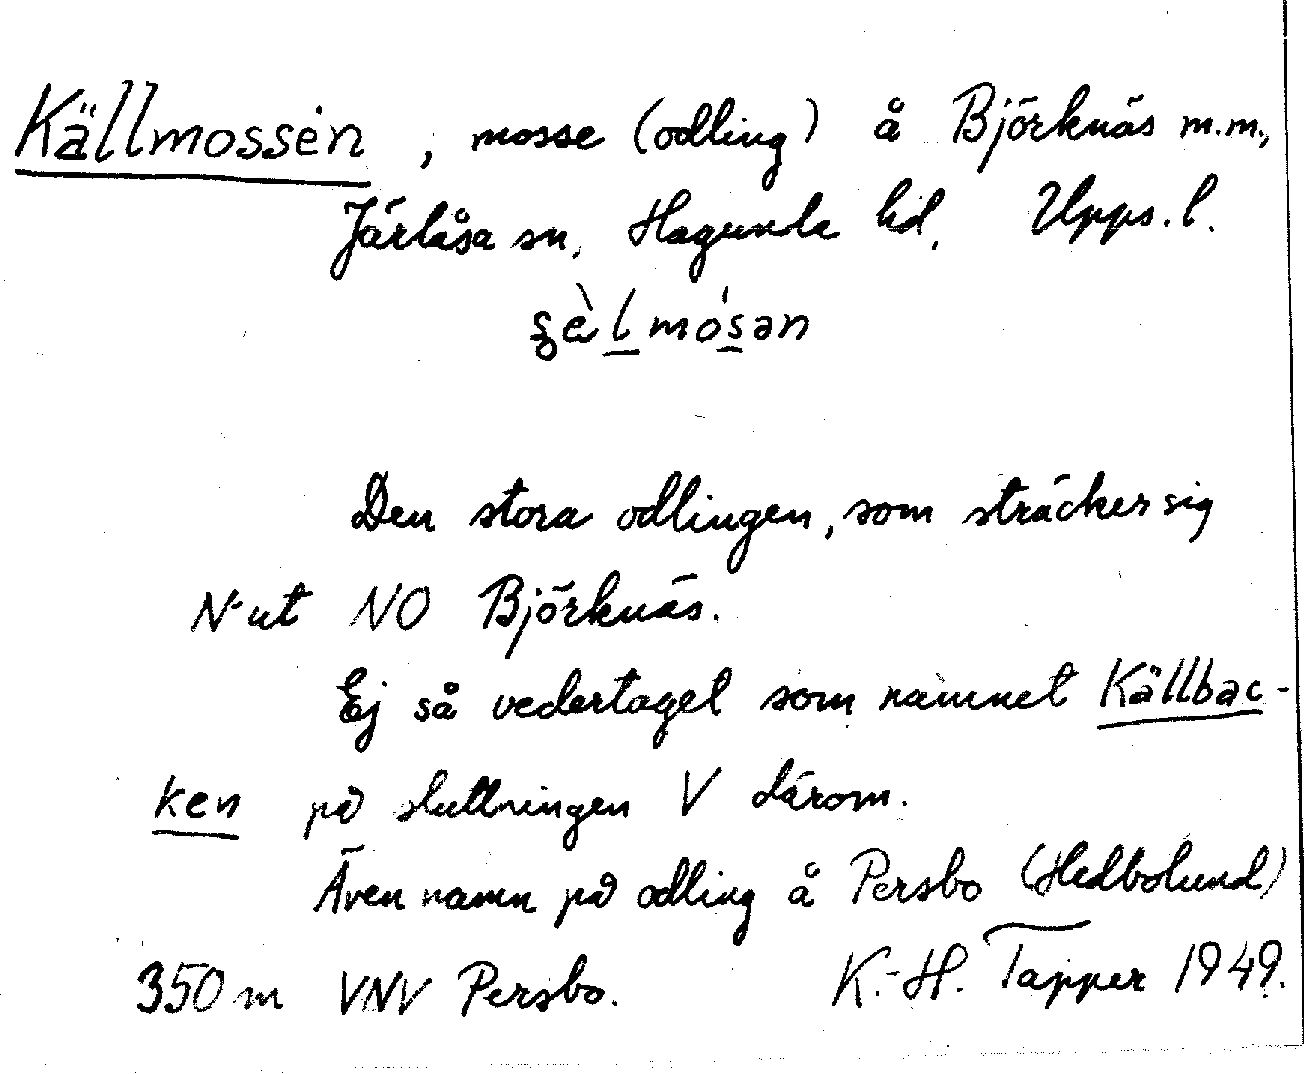 Källmossen, mosse (odling) å Björknäs m.m.,
Järlåsa sn, Hagunda hd, Upps. l.
ʂè̱lmó̱sən
Den stora odlingen, som sträcker sig
N-ut NO Björknäs.
Ej så vedertaget som namnet Källbac-
ken på sluttningen V därom.
Även namn på odling å Persbo (Hedbolund)
350 m VNV Persbo. K.-H. Tapper 1949.